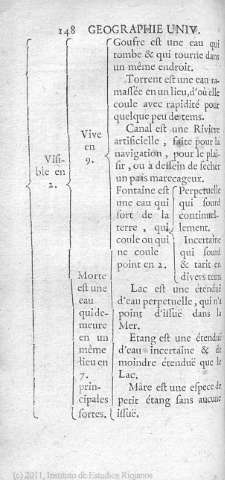 148 GEOGRAPHIE UNIV.
Visi-
ble en
2.
Vive
en
9.
Morte
est une
eau
qui de-
meure
en un
même
lieu en
7.
prin-
cipales
sortes.
Goufre est une eau qui
tombe & qui tourne dans
un même endroit.
Torrent est une eau ra-
massée en un lieu, d'où elle
coule avec rapidité pour
quelque peu de tems.
Canal est une Riviere
artificielle, faite pour la
navigation, pour le plai-
sir, ou a dessein de secher
un païs marecageux.
Fontaine est
une eau qui
sort de la
terre, qui
coule ou qui
ne coule
point en 2.
Perpetuelle
qui sourd
continuel-
lement.
Incertaine
qui sourd
& tarit en
divers tems
Lac est une étenduë
d'eau perpetuelle, qui n'a
point d'issuë dans la
Mer.
Etang est une étenduë
d'eau incertaine & de
moindre étenduë que le
Lac.
Mare est une espece de
petit étang sans aucune
issuë.
(c) 2011, Instituto de Estudios Riojanos